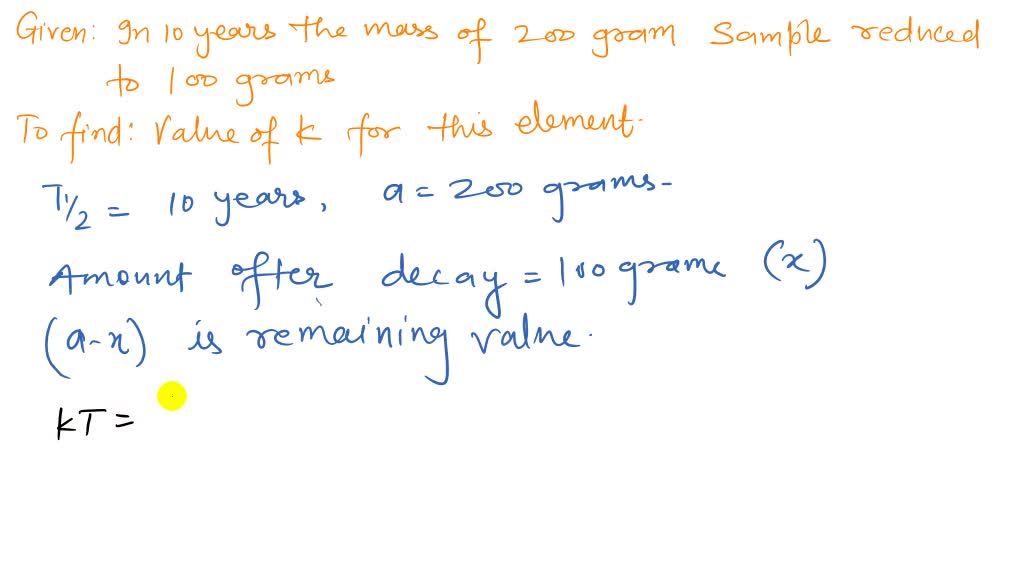 Given: In 10 years the mass of 200 gram Sample reduced
to 100 grams
To find: Value of k for this element.
T1/2 = 10 years, a = 200 grams-
Amount after decay = 100 grame (x)
(a-x) is remaining value.
kT =